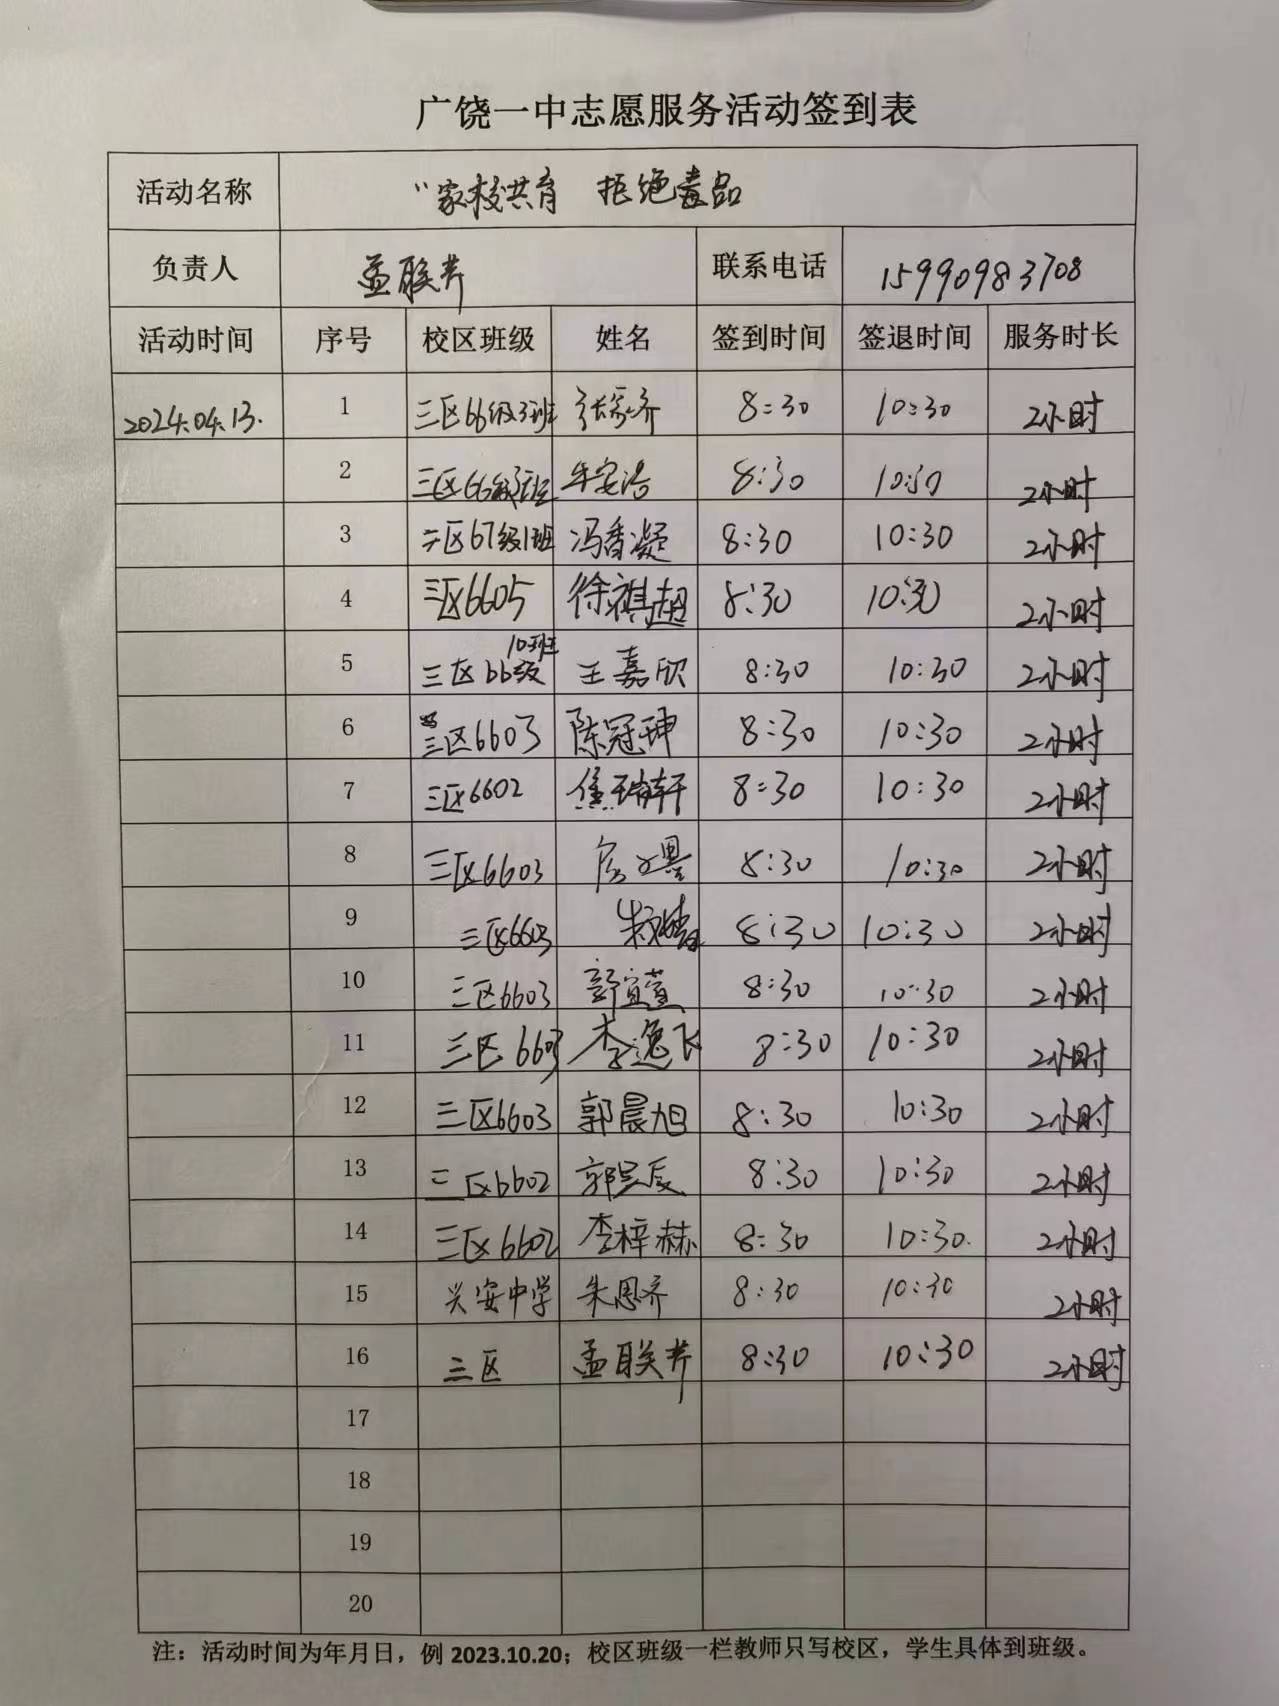 广饶一中志愿服务活动签到表
活动名称 “家校共育 拒绝毒品
负责人 孟联芹 联系电话 15990983708
活动时间 序号 校区班级 姓名 签到时间 签退时间 服务时长
2024.04.13. 1 三区66级3班 8:30 10:30 2小时
2 三区66级3班 牟安浩 8:30 10:30 2小时
3 三区67级1班 冯香凝 8:30 10:30 2小时
4 三区6605 徐祺超 8:30 10:30 2小时
5 三区66级10班 王嘉欣 8:30 10:30 2小时
6 三区6603 陈冠珅 8:30 10:30 2小时
7 三区6602 8:30 10:30 2小时
8 三区6603 8:30 10:30 2小时
9 三区6603 8:30 10:30 2小时
10 三区6603 郭宜萱 8:30 10:30 2小时
11 三区6603 李逸飞 8:30 10:30 2小时
12 三区6603 郭晨旭 8:30 10:30 2小时
13 三区6602 郭昱辰 8:30 10:30 2小时
14 三区6602 李梓赫 8:30 10:30. 2小时
15 兴安中学 朱恩齐 8:30 10:30 2小时
16 三区 孟联芹 8:30 10:30 2小时
17
18
19
20
注：活动时间为年月日，例 2023.10.20；校区班级一栏教师只写校区，学生具体到班级。